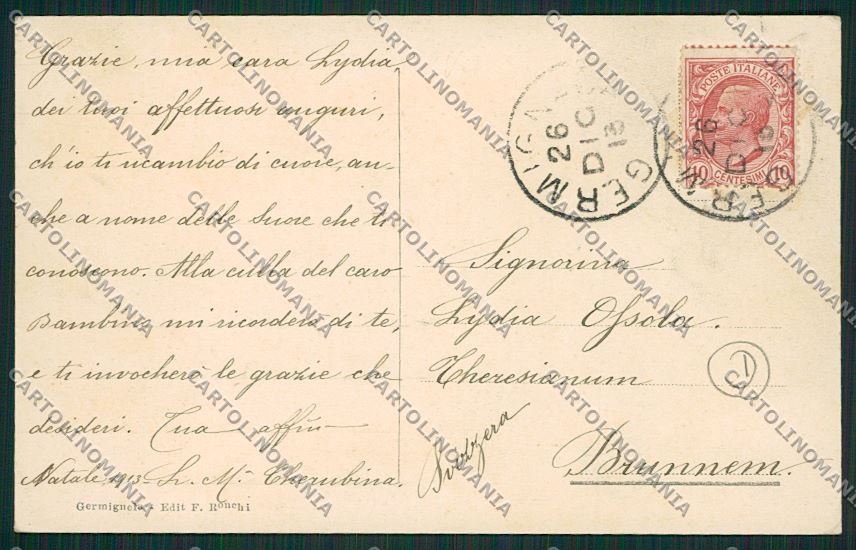 Grazie, mia cara Lydia
dei tuoi affettuosi auguri,
ch'io ti ricambio di cuore, an-
che a nome delle Suore che ti
conoscono. Alla culla del caro
Bambino mi ricorderò di te,
e ti invocherò le grazie che
desideri. Tua affma
Natale 1913 M. Cherubina.
Germignola - Edit F. Ronchi
POSTE ITALIANE
10 CENTESIMI 10
GERMIGN
26 DIC 13
GERM
26 DIC 13
Signorina
Lydia Ossola.
Theresianum
Brunnem.
Svizzera
1
CARTOLINOMANIA